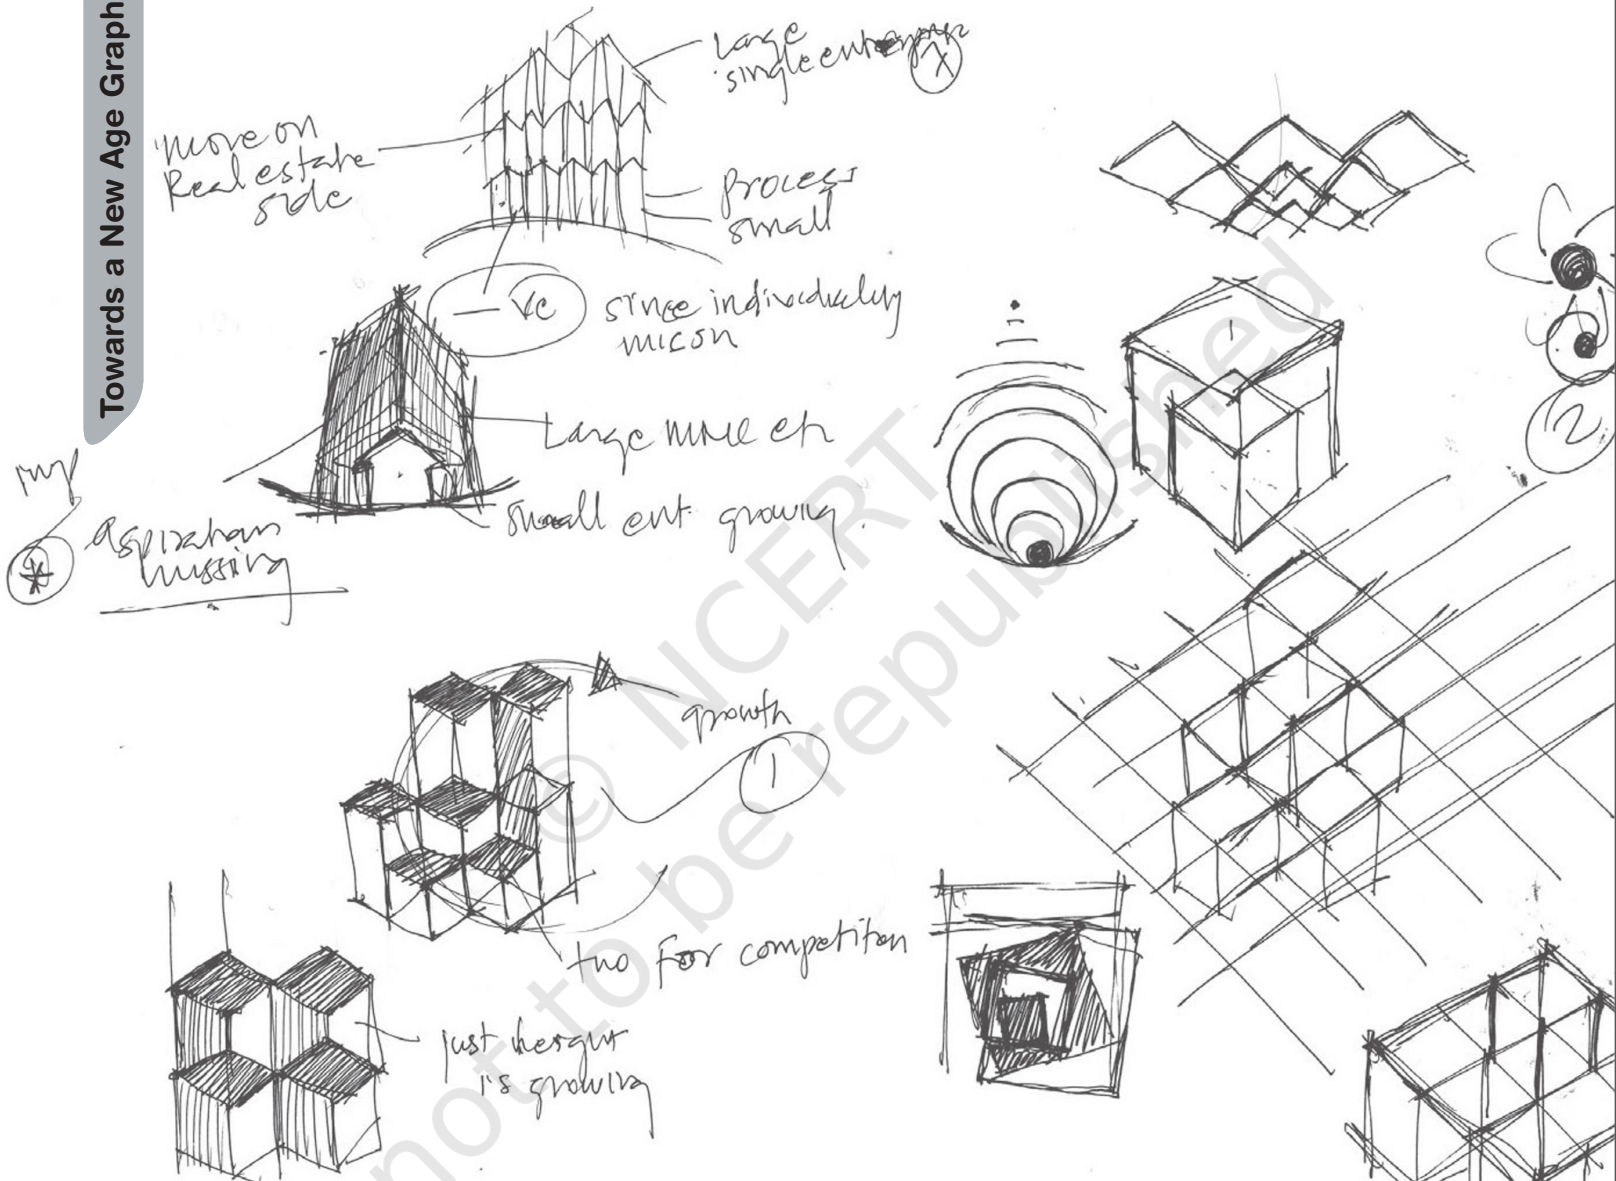 Towards a New Age Graph
Large
single
X
move on
Real estate
side
Process
small
– ve
since individually
micon
Large
small ent. growing.
imp
*
Aspiration
missing
growth
1
two For competition
just height
is growing
1
2
© NCERT
not to be republished